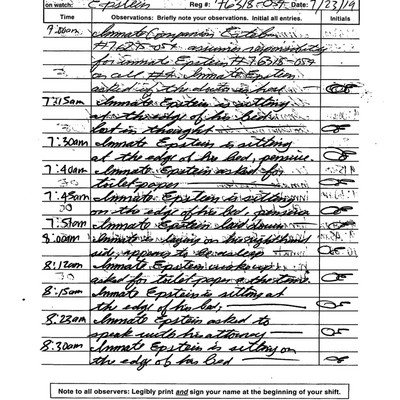 on watch: Epstein Reg #: 76318-054 Date: 7/23/19
Time Observations: Briefly note your observations. Initial all entries. Initials
7:00am Inmate Companion
#76318-054 assumes responsibility
for inmate Epstein #76318-054
on cell Inmate Epstein
asked if the
7:15am Inmate Epstein is sitting
at the edge of his bed
lost in thought
7:30am Inmate Epstein is sitting
at the edge of his bed, pensive.
7:40am Inmate Epstein asked for
toilet paper
7:45am Inmate Epstein is sitting
on the edge of his bed, pensive
7:51am Inmate Epstein laid down
8:00am Inmate is laying on his right hand
side, appears to be asleep
8:12am Inmate Epstein woke up
asked for toilet paper & the time.
8:15am Inmate Epstein is sitting at
the edge of his bed,
8:23am Inmate Epstein asked to
speak with his attorney
8:30am Inmate Epstein is sitting on
the edge of his bed
Note to all observers: Legibly print and sign your name at the beginning of your shift.